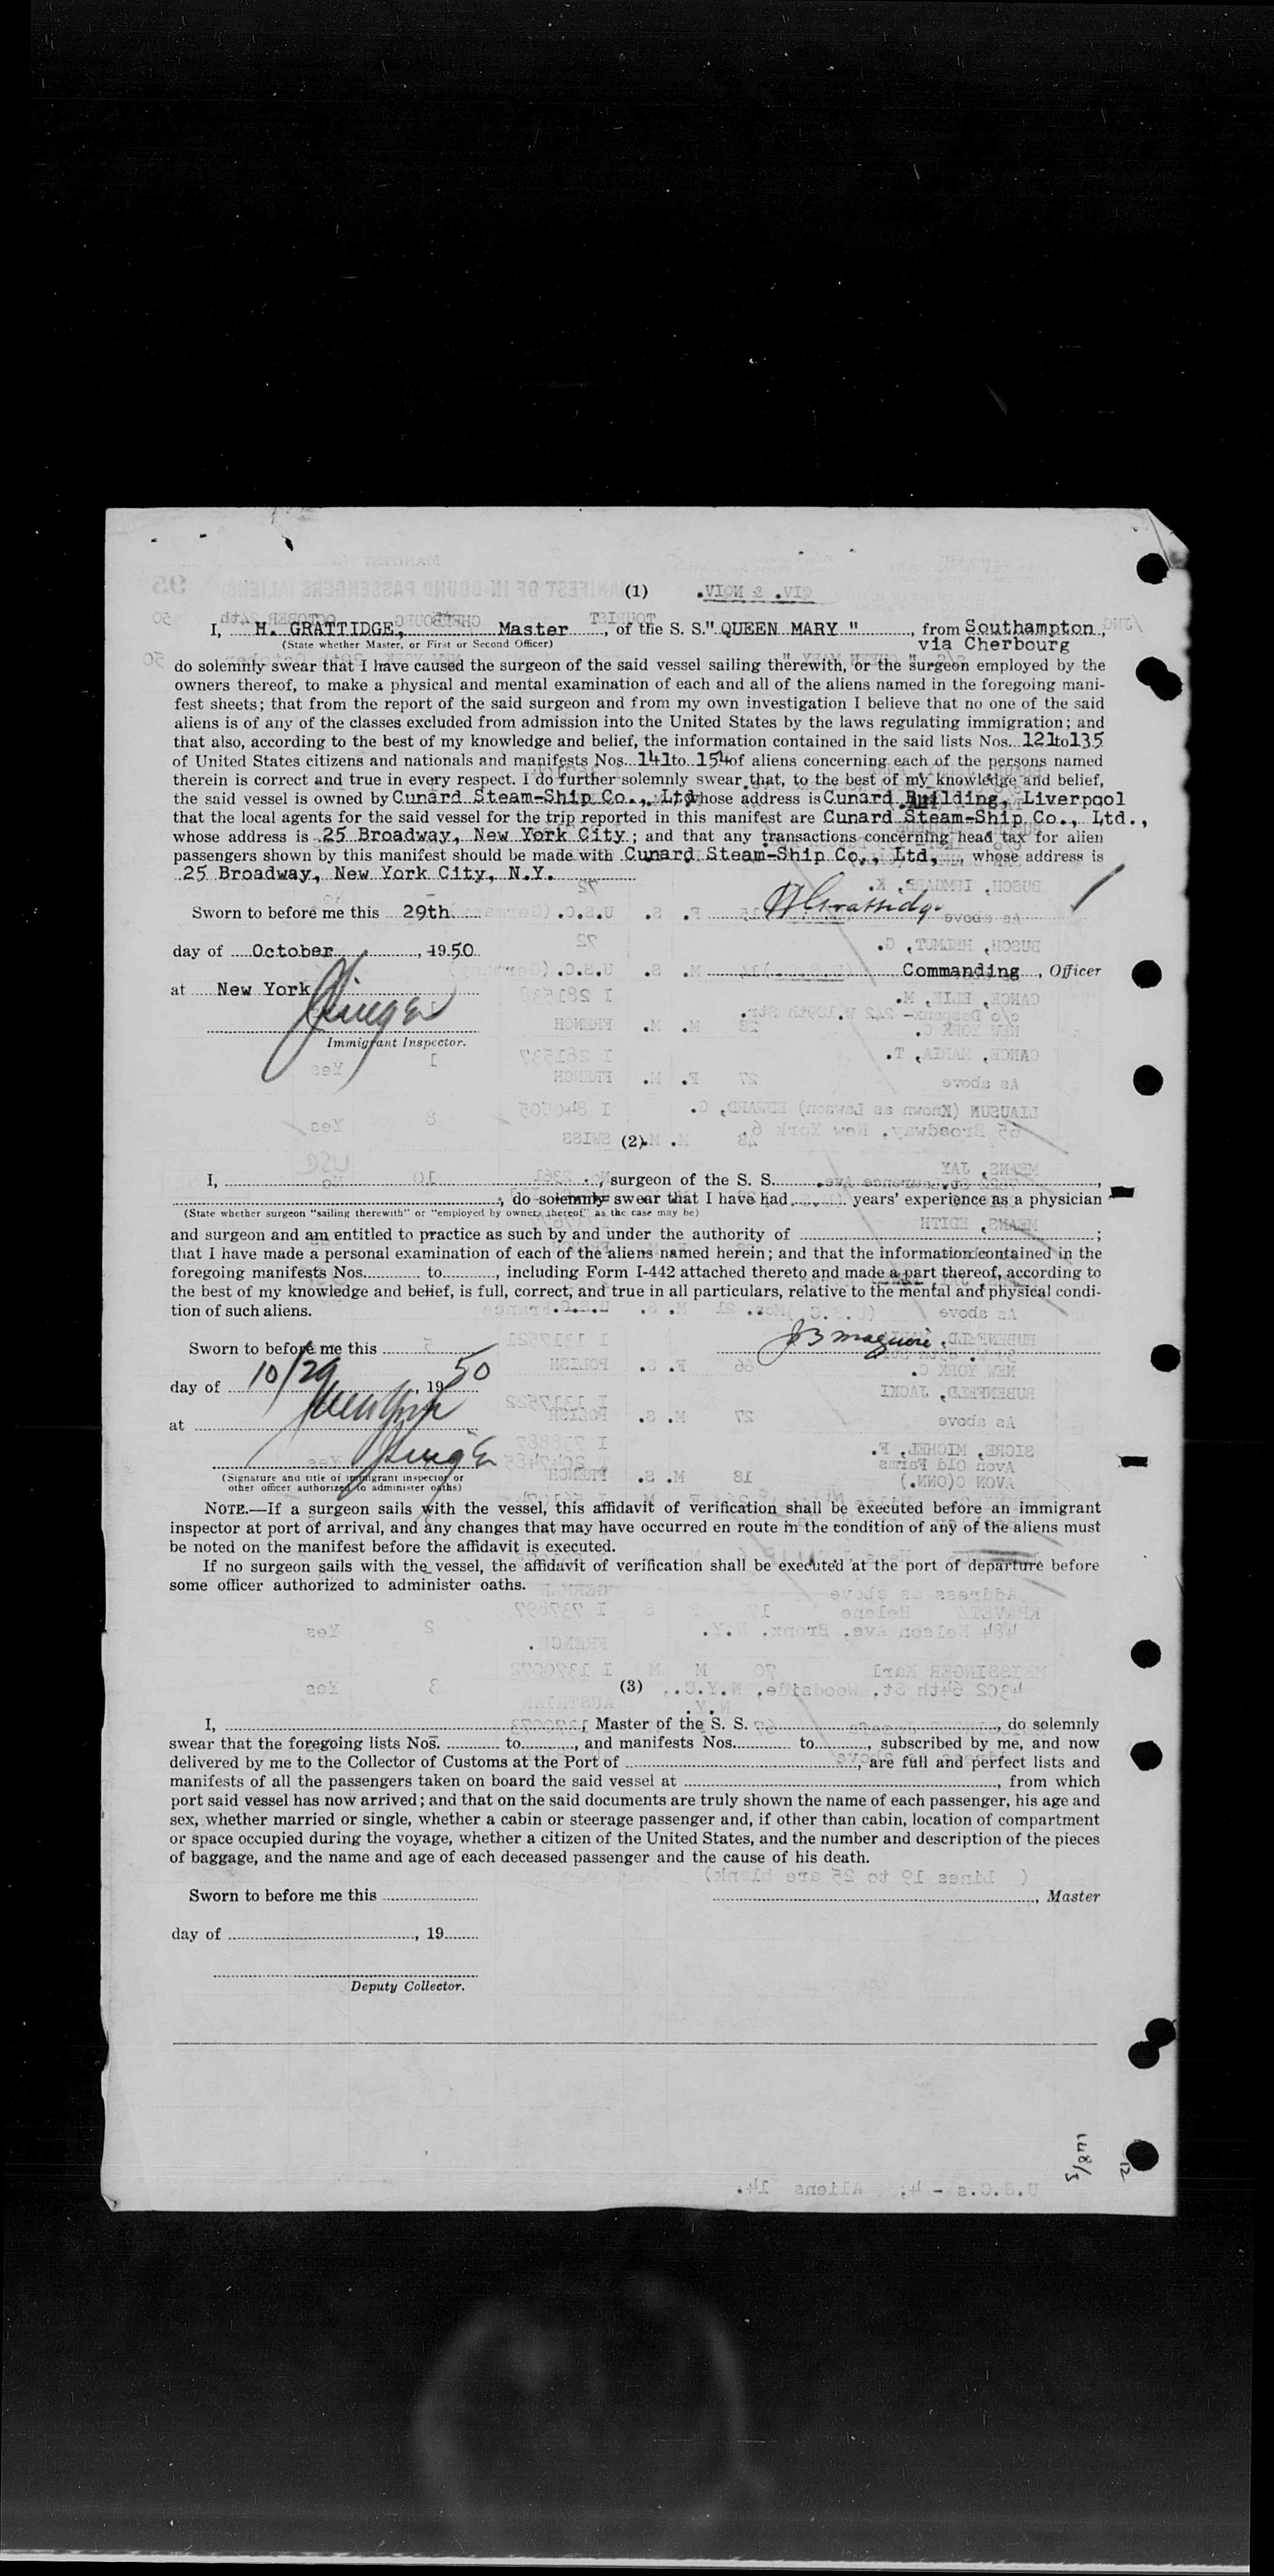 (1)
I, H. GRATTIDGE, Master, of the S. S. " QUEEN MARY ", from Southampton,
(State whether Master, or First or Second Officer) via Cherbourg
do solemnly swear that I have caused the surgeon of the said vessel sailing therewith, or the surgeon employed by the
owners thereof, to make a physical and mental examination of each and all of the aliens named in the foregoing mani-
fest sheets; that from the report of the said surgeon and from my own investigation I believe that no one of the said
aliens is of any of the classes excluded from admission into the United States by the laws regulating immigration; and
that also, according to the best of my knowledge and belief, the information contained in the said lists Nos. 121 to 135
of United States citizens and nationals and manifests Nos. 141 to 154 of aliens concerning each of the persons named
therein is correct and true in every respect. I do further solemnly swear that, to the best of my knowledge and belief,
the said vessel is owned by Cunard Steam-Ship Co., Ltd whose address is Cunard Building, Liverpool
that the local agents for the said vessel for the trip reported in this manifest are Cunard Steam-Ship Co., Ltd.,
whose address is 25 Broadway, New York City; and that any transactions concerning head tax for alien
passengers shown by this manifest should be made with Cunard Steam-Ship Co., Ltd, whose address is
25 Broadway, New York City, N.Y.
Sworn to before me this 29th H Grattidge
day of October, 1950
Commanding, Officer
at New York
Immigrant Inspector.
(2)
I, , surgeon of the S. S. ,
, do solemnly swear that I have had years' experience as a physician
(State whether surgeon "sailing therewith" or "employed by owners thereof" as the case may be)
and surgeon and am entitled to practice as such by and under the authority of ;
that I have made a personal examination of each of the aliens named herein; and that the information contained in the
foregoing manifests Nos. to , including Form I-442 attached thereto and made a part thereof, according to
the best of my knowledge and belief, is full, correct, and true in all particulars, relative to the mental and physical condi-
tion of such aliens.
Sworn to before me this J B Maguire
day of 10/29, 1950
at New York
(Signature and title of immigrant inspector or
other officer authorized to administer oaths)
NOTE.—If a surgeon sails with the vessel, this affidavit of verification shall be executed before an immigrant
inspector at port of arrival, and any changes that may have occurred en route in the condition of any of the aliens must
be noted on the manifest before the affidavit is executed.
If no surgeon sails with the vessel, the affidavit of verification shall be executed at the port of departure before
some officer authorized to administer oaths.
(3)
I, , Master of the S. S. , do solemnly
swear that the foregoing lists Nos. to , and manifests Nos. to , subscribed by me, and now
delivered by me to the Collector of Customs at the Port of , are full and perfect lists and
manifests of all the passengers taken on board the said vessel at , from which
port said vessel has now arrived; and that on the said documents are truly shown the name of each passenger, his age and
sex, whether married or single, whether a cabin or steerage passenger and, if other than cabin, location of compartment
or space occupied during the voyage, whether a citizen of the United States, and the number and description of the pieces
of baggage, and the name and age of each deceased passenger and the cause of his death.
Sworn to before me this , Master
day of , 19
Deputy Collector.